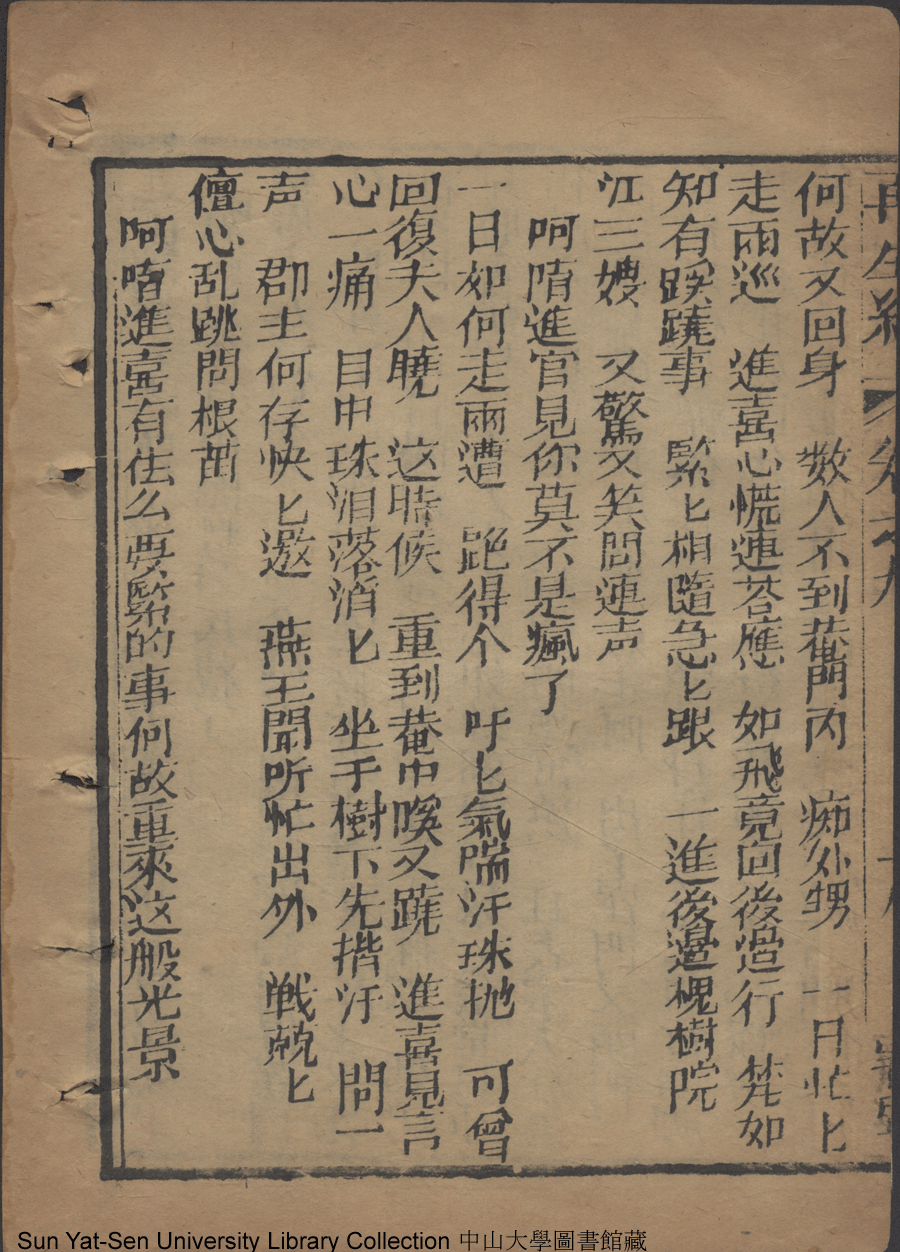 再生緣 卷之九
何故又回身 数人不到菴門內 痴外甥 一日忙匕
走兩巡 進喜心慌連答應 如飛竟回後邊行 梵如
知有蹊蹺事 緊匕相隨急匕跟 一進後邊槐樹院
江三嫂 又驚又笑問連声
呵唷進官見你莫不是瘋了
一日如何走兩遭 跑得个 吁匕氣喘汗珠抛 可曾
回復夫人曉 这時候 重到菴中喚又蹺 進喜見言
心一痛 目中珠泪落消匕 坐于樹下先揩汗 問一
声 郡主何存快匕邀 燕王聞听忙出外 戰兢匕
儃心乱跳問根苗
呵唷進喜有佐么要緊的事何故重來这般光景
Sun Yat-Sen University Library Collection 中山大學圖書館藏